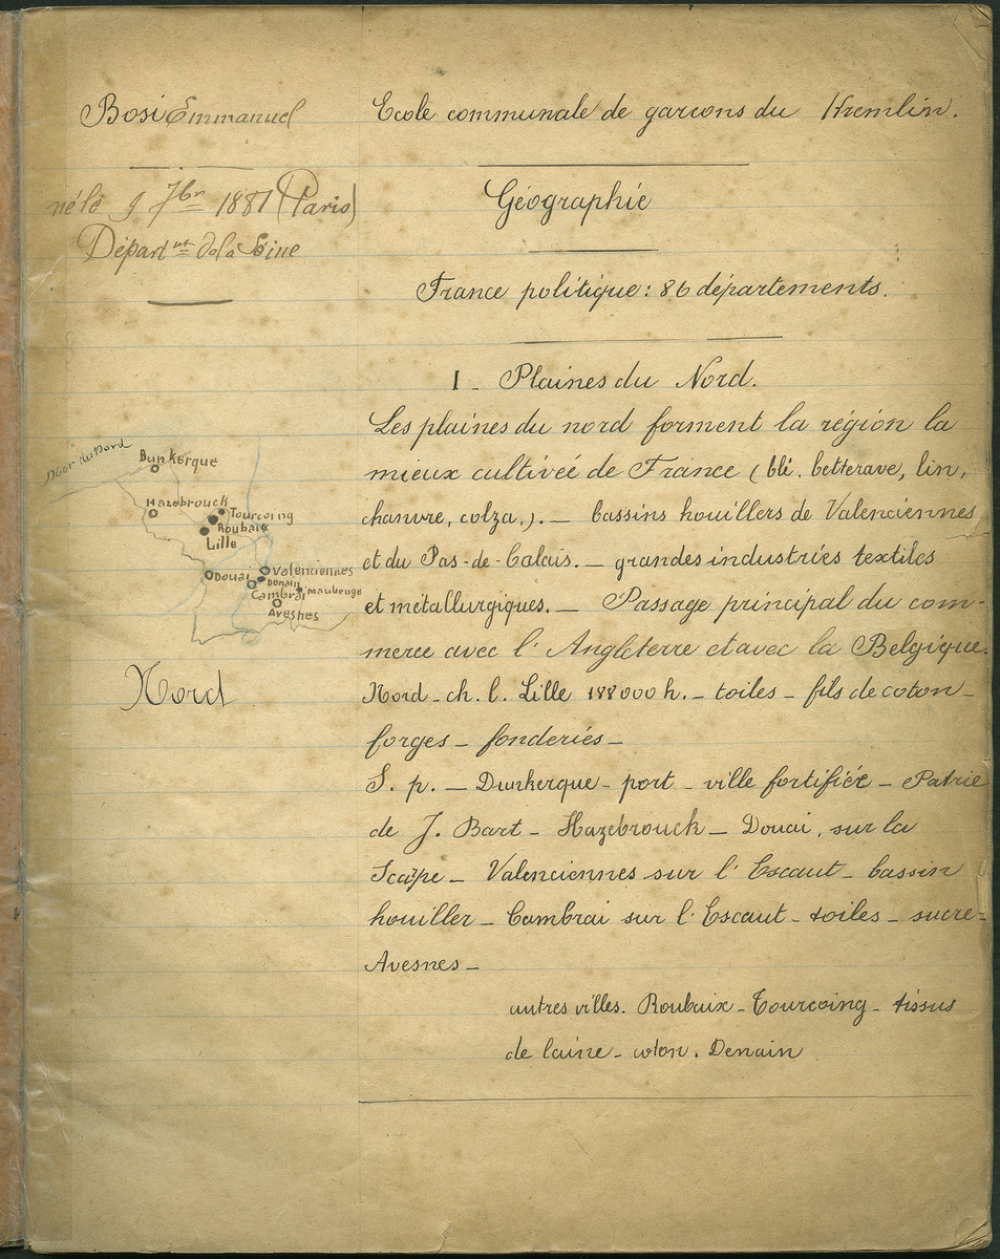 Bosi Emmanuel
né le 9 7bre 1881 (Paris)
Départnt de la Seine
Ecole communale de garcons du Kremlin.
Géographie
France politique: 86 départements.
1 - Plaines du Nord.
Les plaines du nord forment la région la
mieux cultiveé de France (blé. betterave, lin,
chanvre, colza.). — bassins houillers de Valenciennes
et du Pas-de-Calais. — grandes industries textiles
et métallurgiques. — Passage principal du com-
merce avec l'Angleterre et avec la Belgique.
Mer du Nord
Dunkerque
Hazebrouck
Tourcoing
Roubaix
Lille
Douai
Valenciennes
Denain
Cambrai
Maubeuge
Avesnes
Nord
Nord - ch. l. Lille 188000 h. - toiles - fils de coton -
forges - fonderies -
S. p. — Dunkerque - port - ville fortifiée - Patrie
de J. Bart - Hazebrouck — Douai, sur la
Scarpe - Valenciennes sur l'Escaut - bassin
houiller - Cambrai sur l'Escaut - toiles - sucre -
Avesnes -
autres villes. Roubaix - Tourcoing - tissus
de laine - coton. Denain